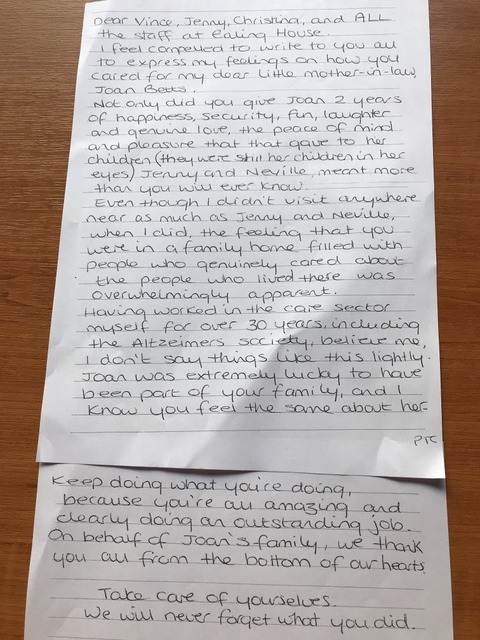 Dear Vince, Jenny, Christina, and ALL
the staff at Ealing House.
I feel compelled to write to you all
to express my feelings on how you
cared for my dear little mother-in-law,
Joan Betts.
Not only did you give Joan 2 years
of happiness, security, fun, laughter
and genuine love, the peace of mind
and pleasure that that gave to her
children (they were still her children in her
eyes) Jenny and Neville, meant more
than you will ever know.
Even though I didn't visit anywhere
near as much as Jenny and Neville,
when I did, the feeling that you
were in a family home filled with
people who genuinely cared about
the people who lived there was
overwhelmingly apparent.
Having worked in the care sector
myself for over 30 years, including
the Altzeimers society, believe me,
I don't say things like this lightly.
Joan was extremely lucky to have
been part of your family, and I
know you feel the same about her.
PTC
Keep doing what you're doing,
because you're all amazing and
clearly doing an outstanding job.
On behalf of Joan's family, we thank
you all from the bottom of our hearts.
Take care of yourselves.
We will never forget what you did.